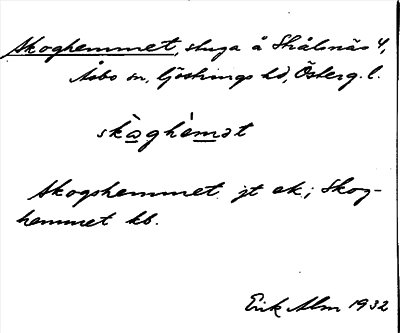 Skoghemmet, stuga å Skålsnäs 4,
Åsbo sn, Göstrings hd, Österg. l.
skàghémət
Skogshemmet jt ek; Skog-
hemmet kb.
Erik Alm 1932